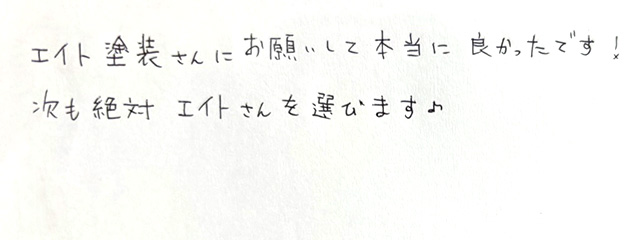 エイト塗装さんにお願いして本当に良かったです！
次も絶対 エイトさんを選びます♪